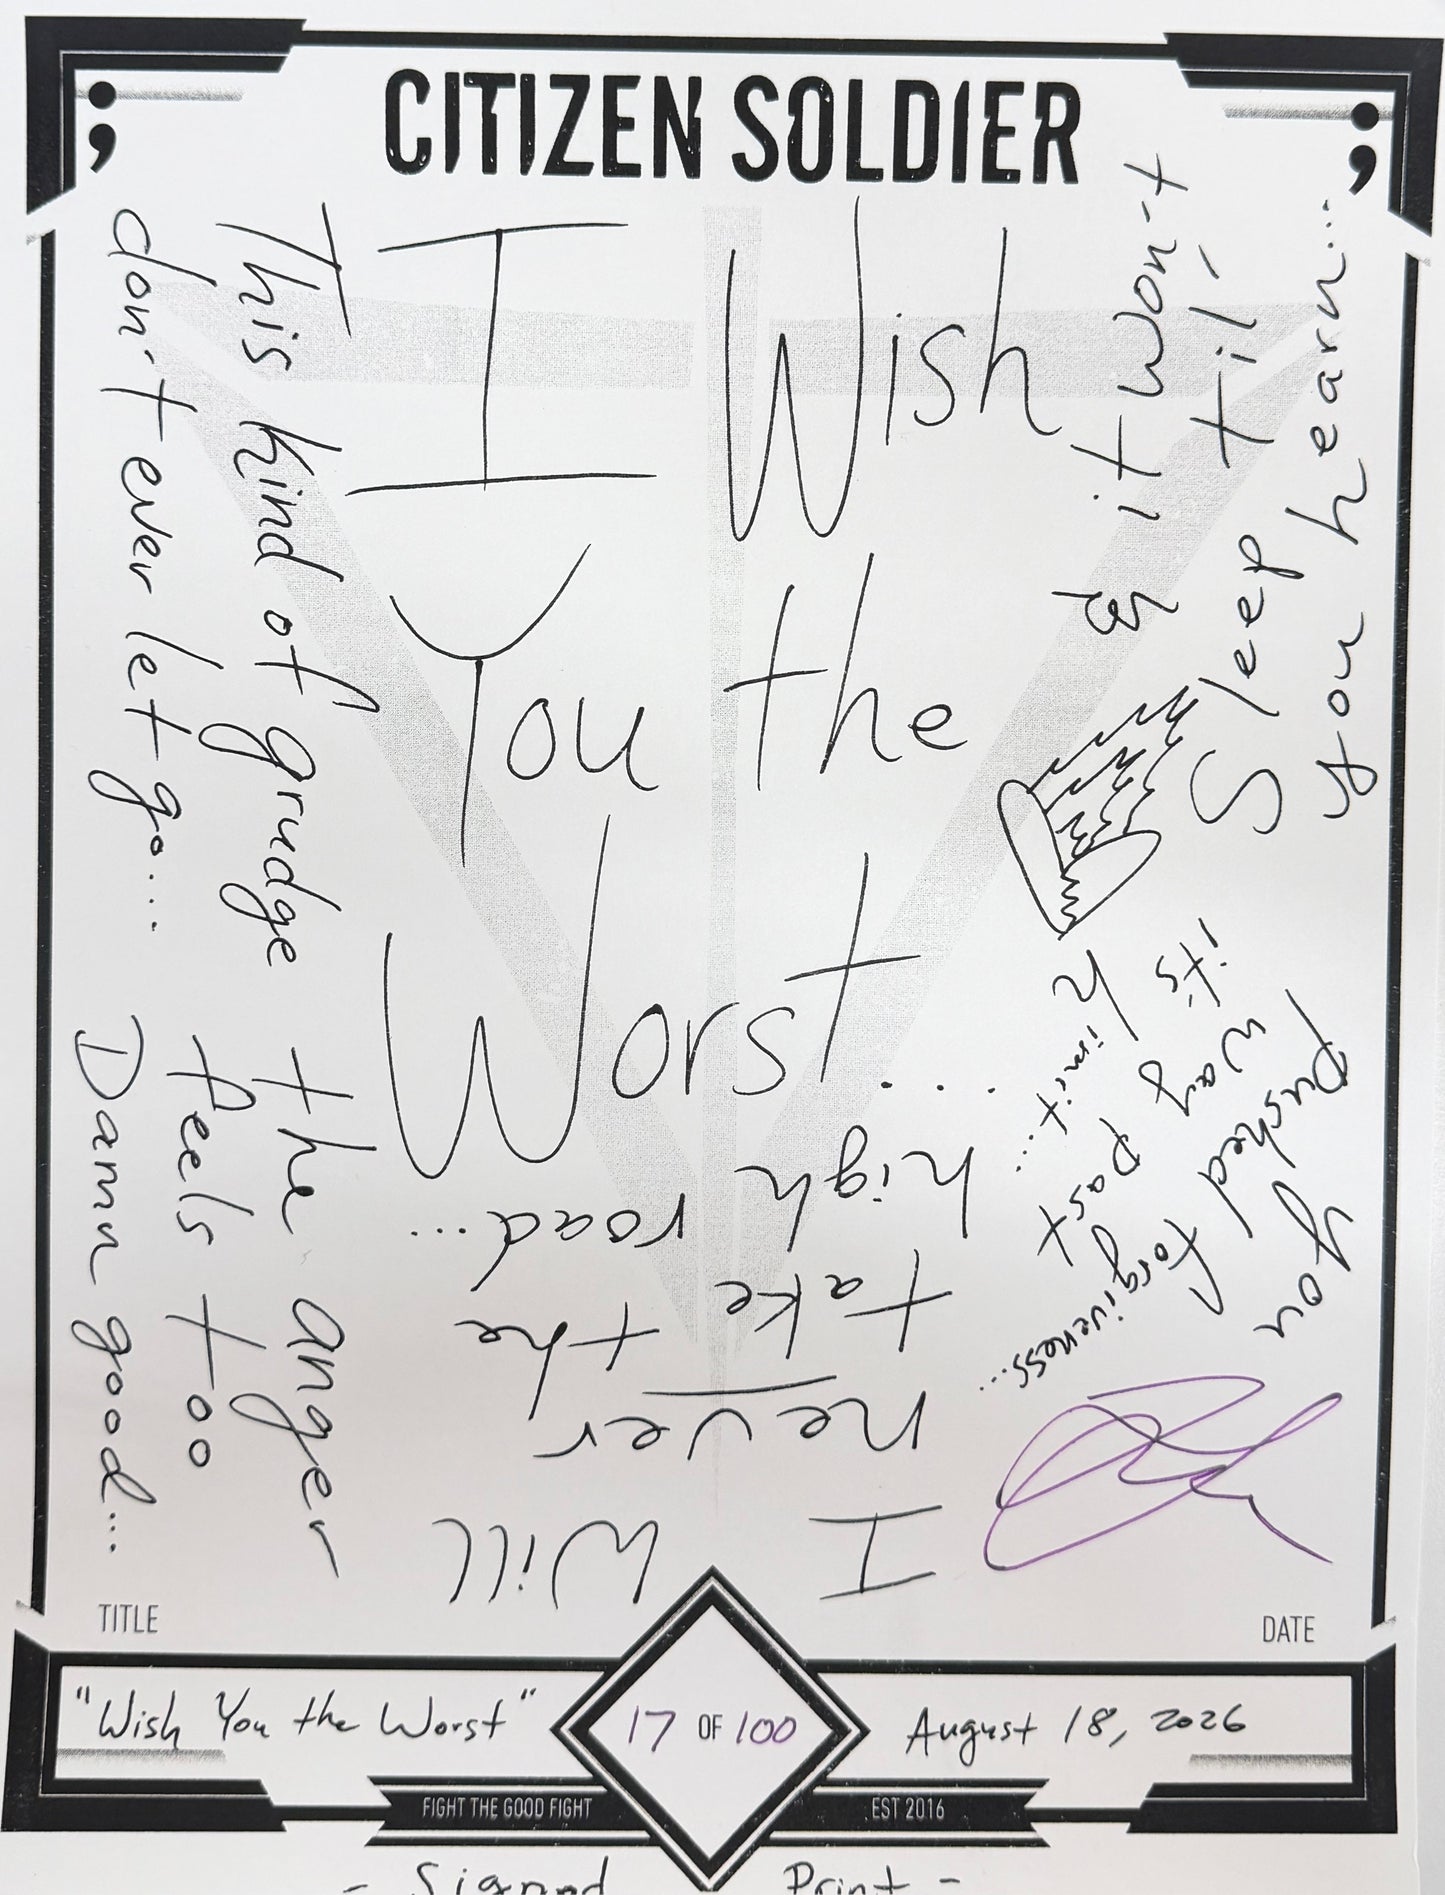 CITIZEN SOLDIER
I Wish
You the
Worst...
& it won't
sleep til'
you hearn...
This kind of grudge
don't ever let go...
the anger
feels too
Damn good...
I Will
never
take the
high road...
You
pushed forgiveness...
way past
it's limit...
TITLE
DATE
"Wish You the Worst"
17 OF 100
August 18, 2026
FIGHT THE GOOD FIGHT
EST 2016
- Signed Print -